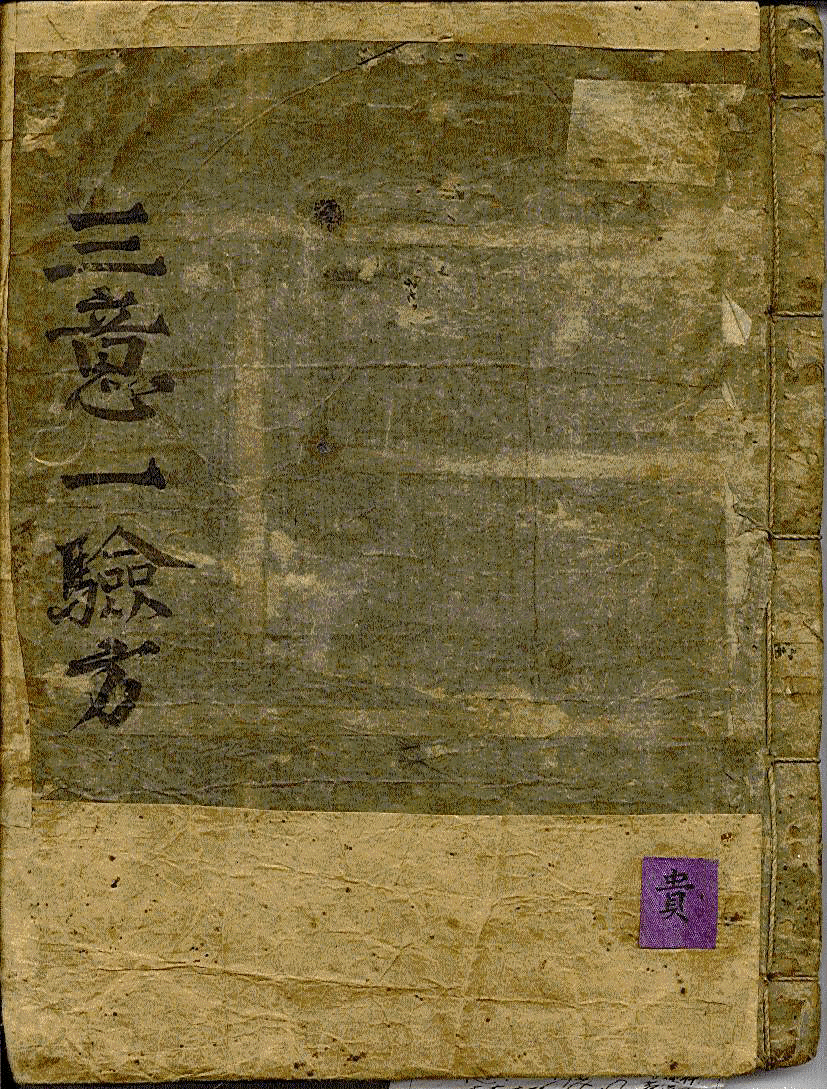 三意一驗方
貴